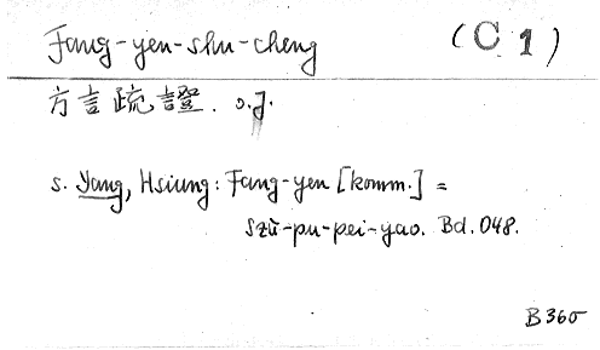 Fang-yen-shu-cheng (C 1)
方言疏證. o.J.
s. Yang, Hsiung: Fang-yen [komm.] =
Szŭ-pu-pei-yao. Bd. 048.
B 360